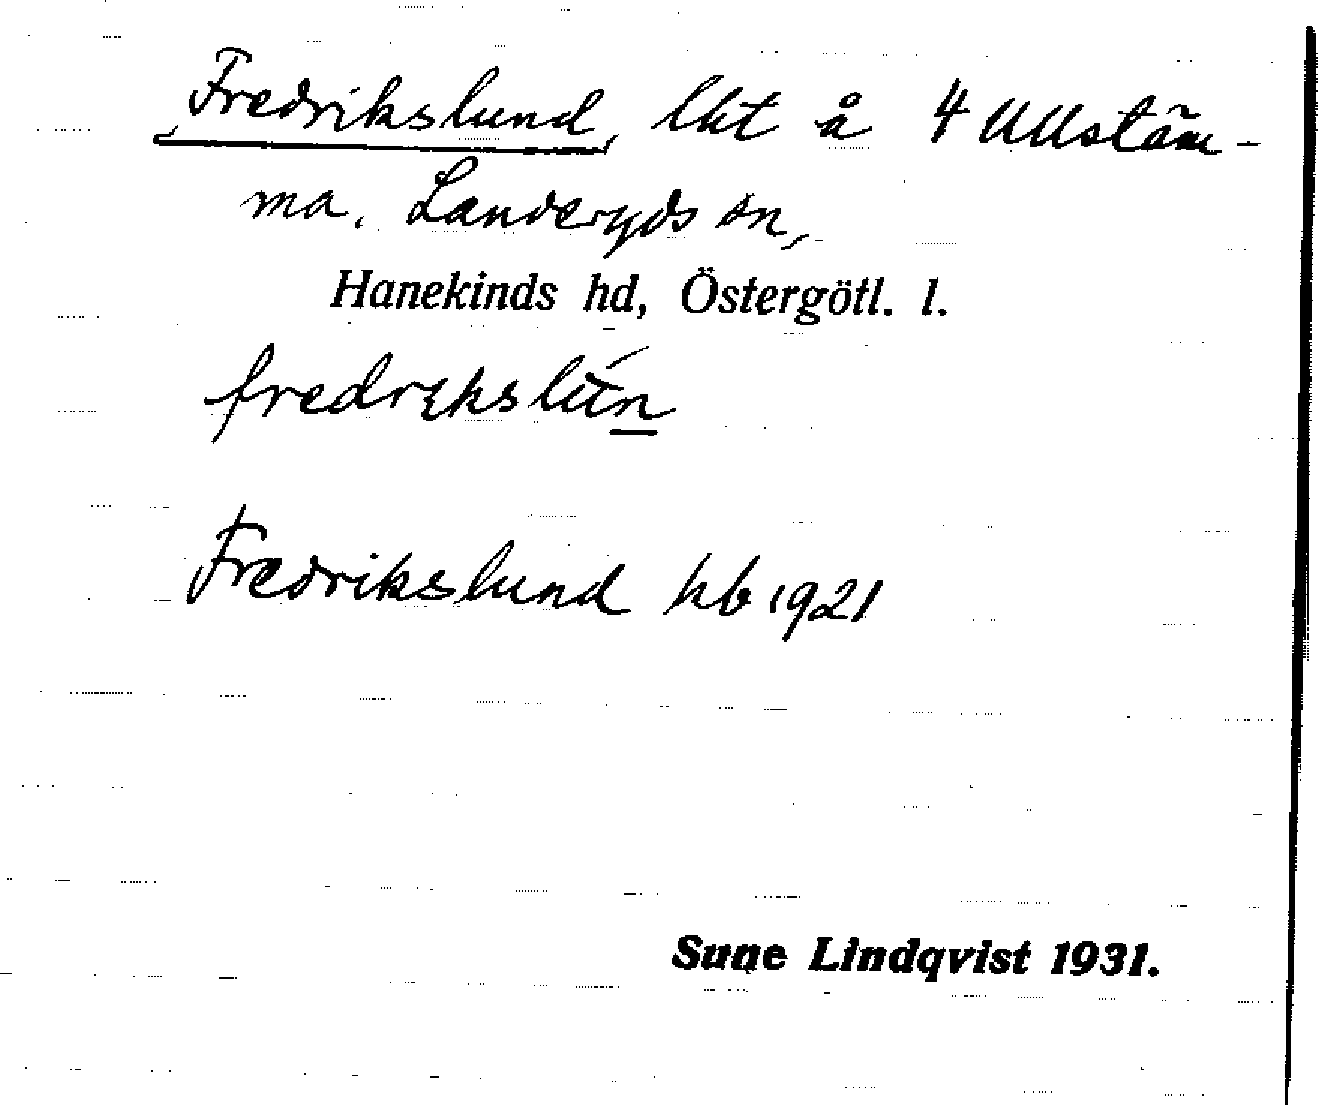 Fredrikslund, lht å 4 Ullstäm-
ma, Landeryds sn,
Hanekinds hd, Östergötl. l.
fredrikslún
Fredrikslund hb 1921
Sune Lindqvist 1931.